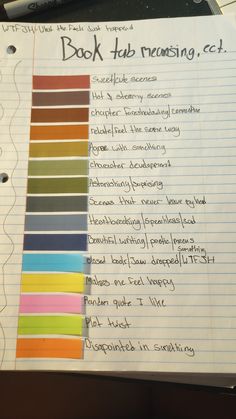 WTFJH - What the Fuck Just happened
Book tab meansing, ect.
Sweet/cute scenes
Hot & steamy scenes
chapter foreshadowing/connective
relate/feel the same way
Agree with something
character development
Astonishing/suprising
Scenes that never leave my head
Heartbreaking/Speachless/sad
Beautiful writing/poetic/means something
closed book/Jaw dropped/WTFJH
Makes me feel happy
Random quote I like
Plot twist
Disapointed in something